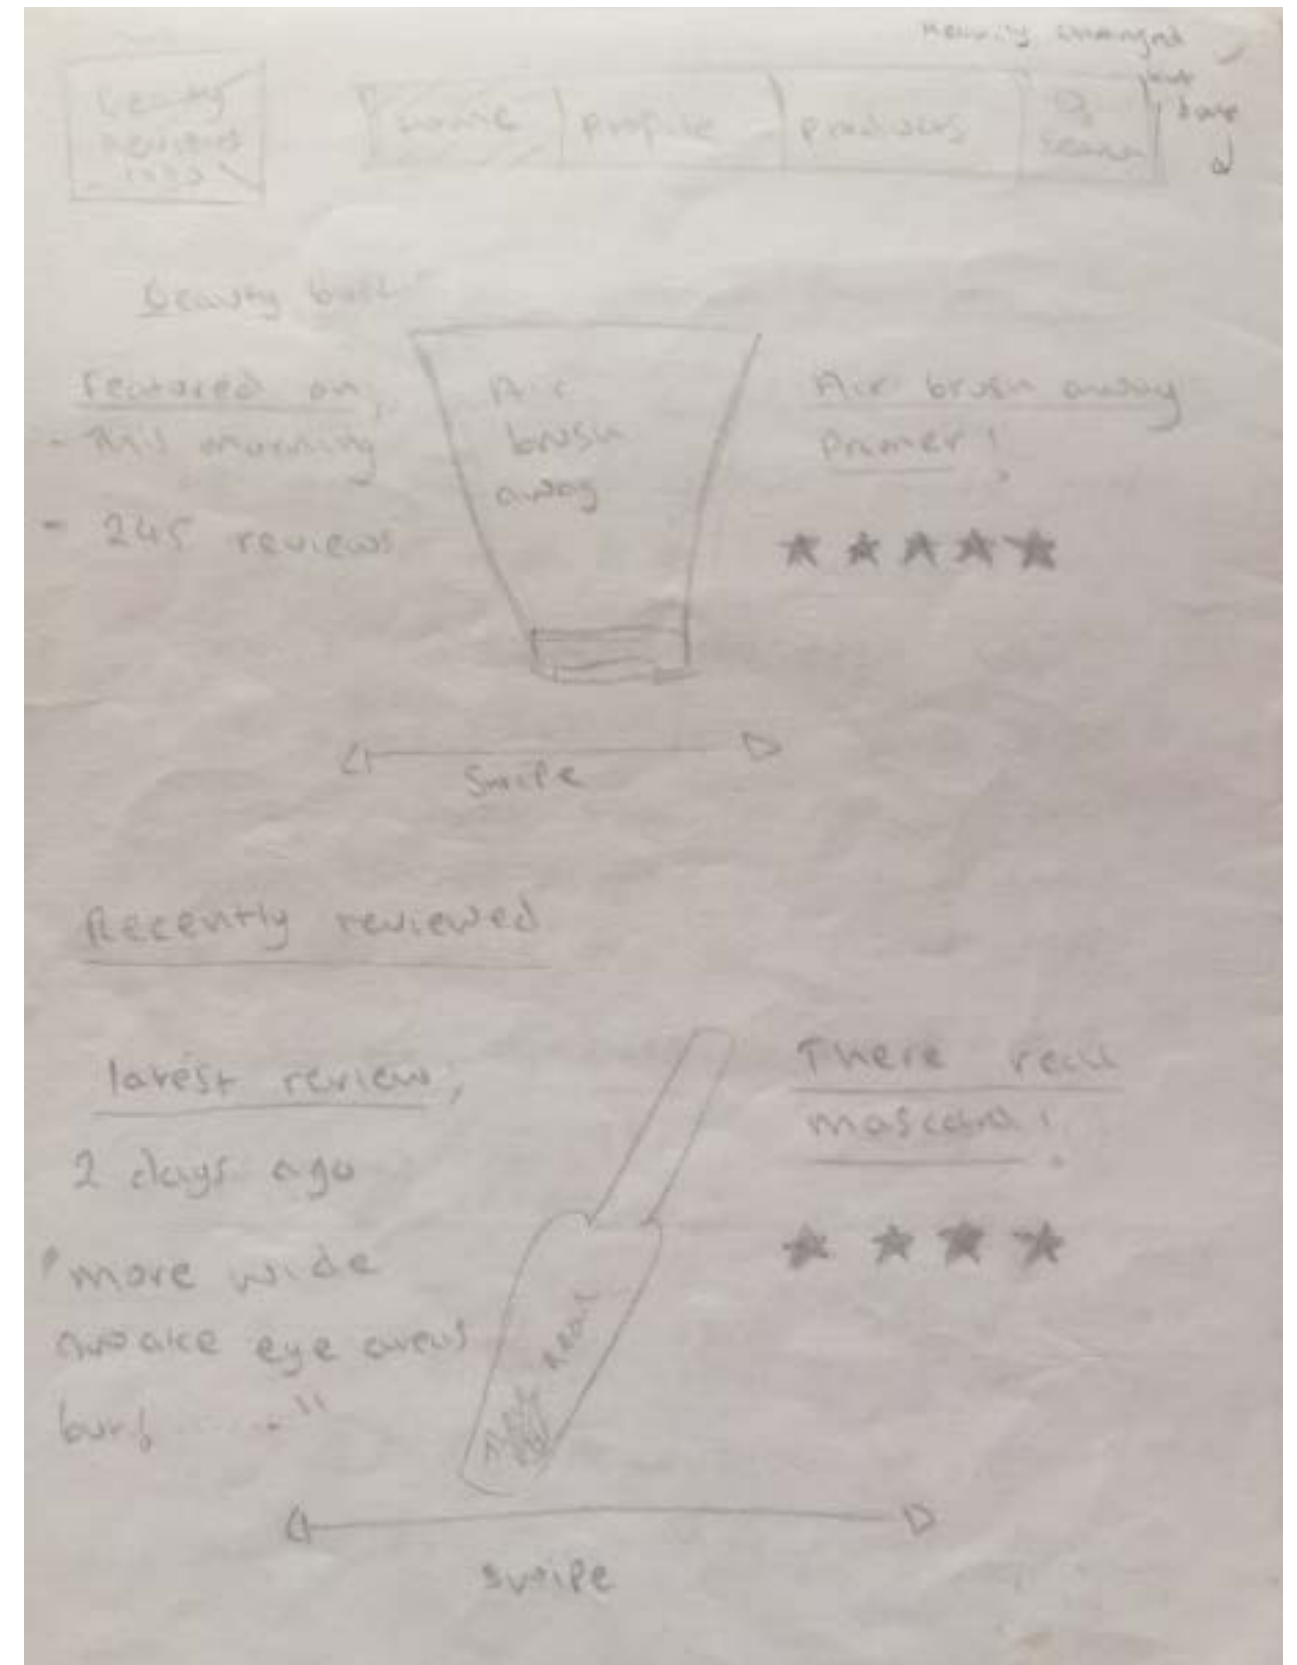 changed
beauty
reviews
logo
home
profile
products
search
Beauty
Featured on;
- This morning
- 245 reviews
Air
brush
away
Air brush away
Primer!
Swipe
Recently reviewed
latest review;
2 days ago
"more wide
awake eye
..."
There real
mascara!
swipe